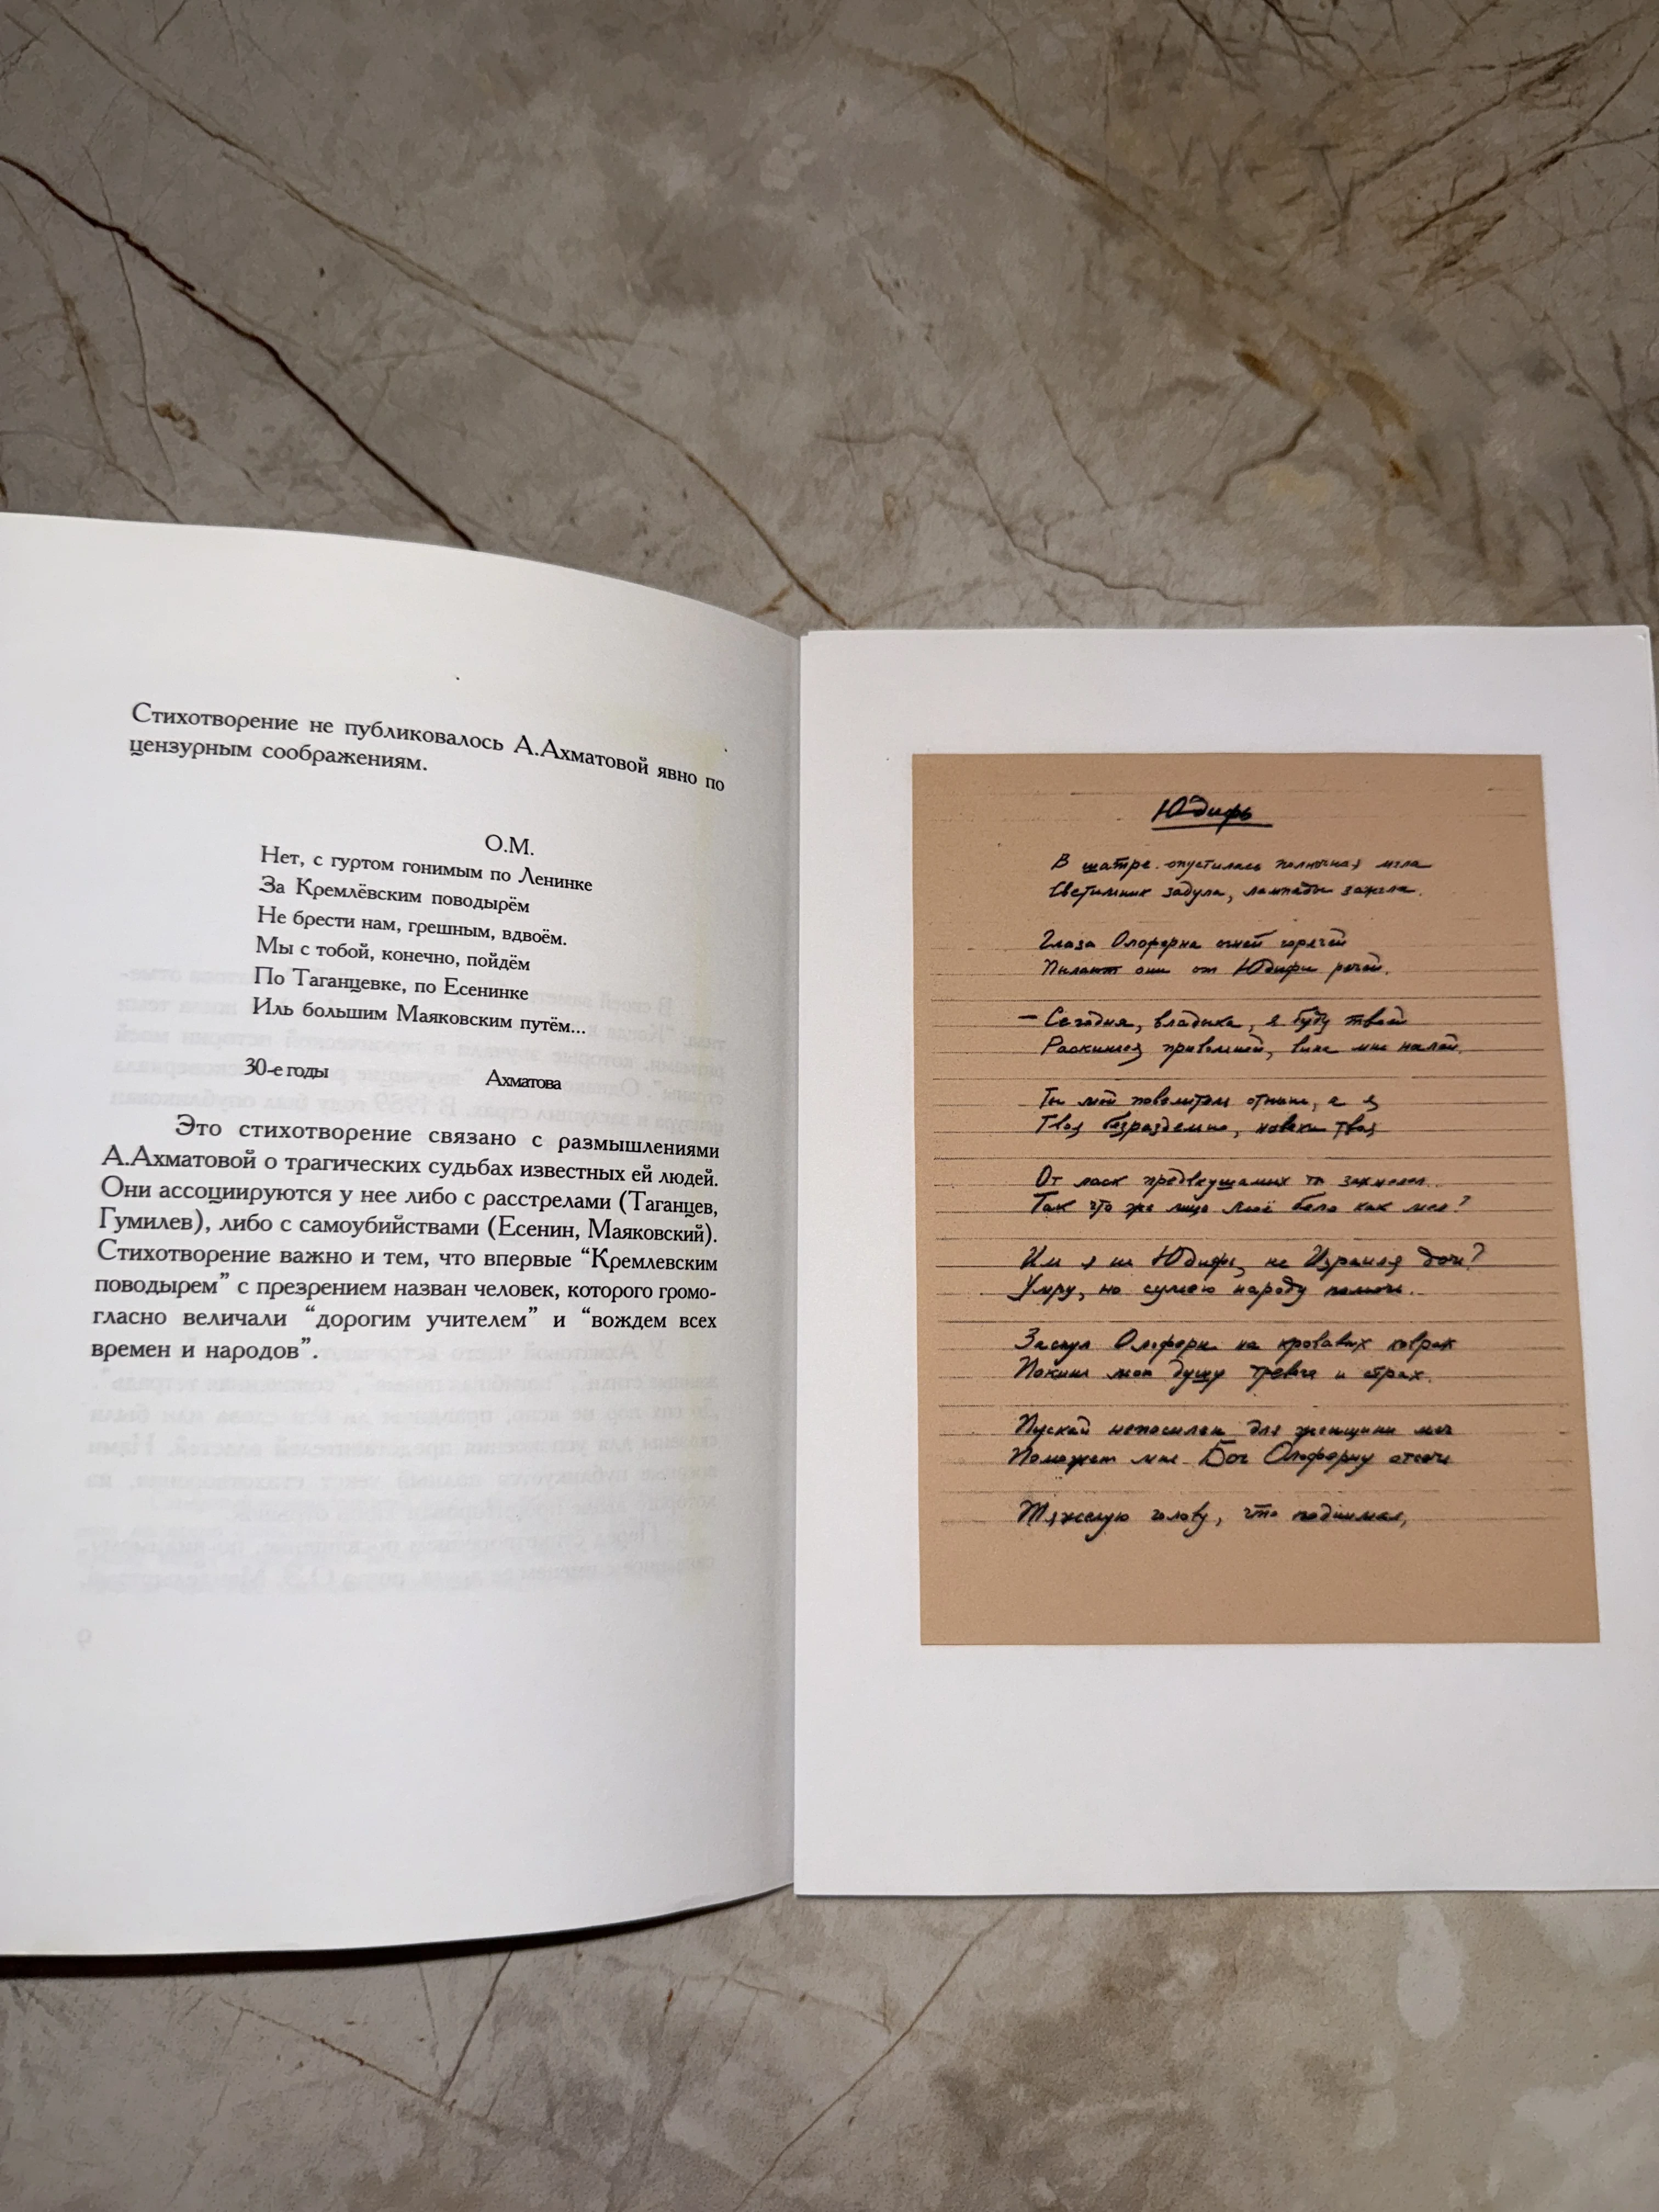 Стихотворение не публиковалось А.Ахматовой явно по
цензурным соображениям.
О.М.
Нет, с гуртом гонимым по Ленинке
За Кремлёвским поводырём
Не брести нам, грешным, вдвоём.
Мы с тобой, конечно, пойдём
По Таганцевке, по Есенинке
Иль большим Маяковским путём...
30-е годы Ахматова
Это стихотворение связано с размышлениями
А.Ахматовой о трагических судьбах известных ей людей.
Они ассоциируются у нее либо с расстрелами (Таганцев,
Гумилев), либо с самоубийствами (Есенин, Маяковский).
Стихотворение важно и тем, что впервые “Кремлевским
поводырем” с презрением назван человек, которого громо-
гласно величали “дорогим учителем” и “вождем всех
времен и народов”.
Юдифь
В шатре опустилась полночная мгла
Светильник задула, лампады зажгла.
Глаза Олоферна огней горячей
Пылают они от Юдифи речей.
— Сегодня, владыка, я буду твоей
Раскинься привольней, вина мне налей.
Ты мой повелитель отныне, а я
Твоя безраздельно, навеки твоя
От ласк предвкушаемых ты захмелел
Так что же лицо твоё бело как мел?
Иль я не Юдифь, не Израиля дочь?
Умру, но сумею народу помочь.
Заснул Олоферн на кровавых коврах
Покинь мою душу тревога и страх.
Пускай непосилен для женщины меч
Поможет мне Бог Олоферну отсечь
Тяжелую голову, что поднимал,